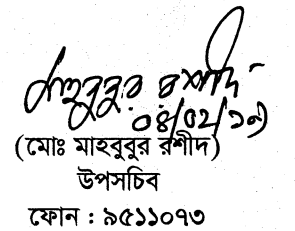 মাহবুবুর রশীদ
০৪/০২/১৯
(মোঃ মাহবুবুর রশীদ)
উপসচিব
ফোন : ৯৫১১০৭৩